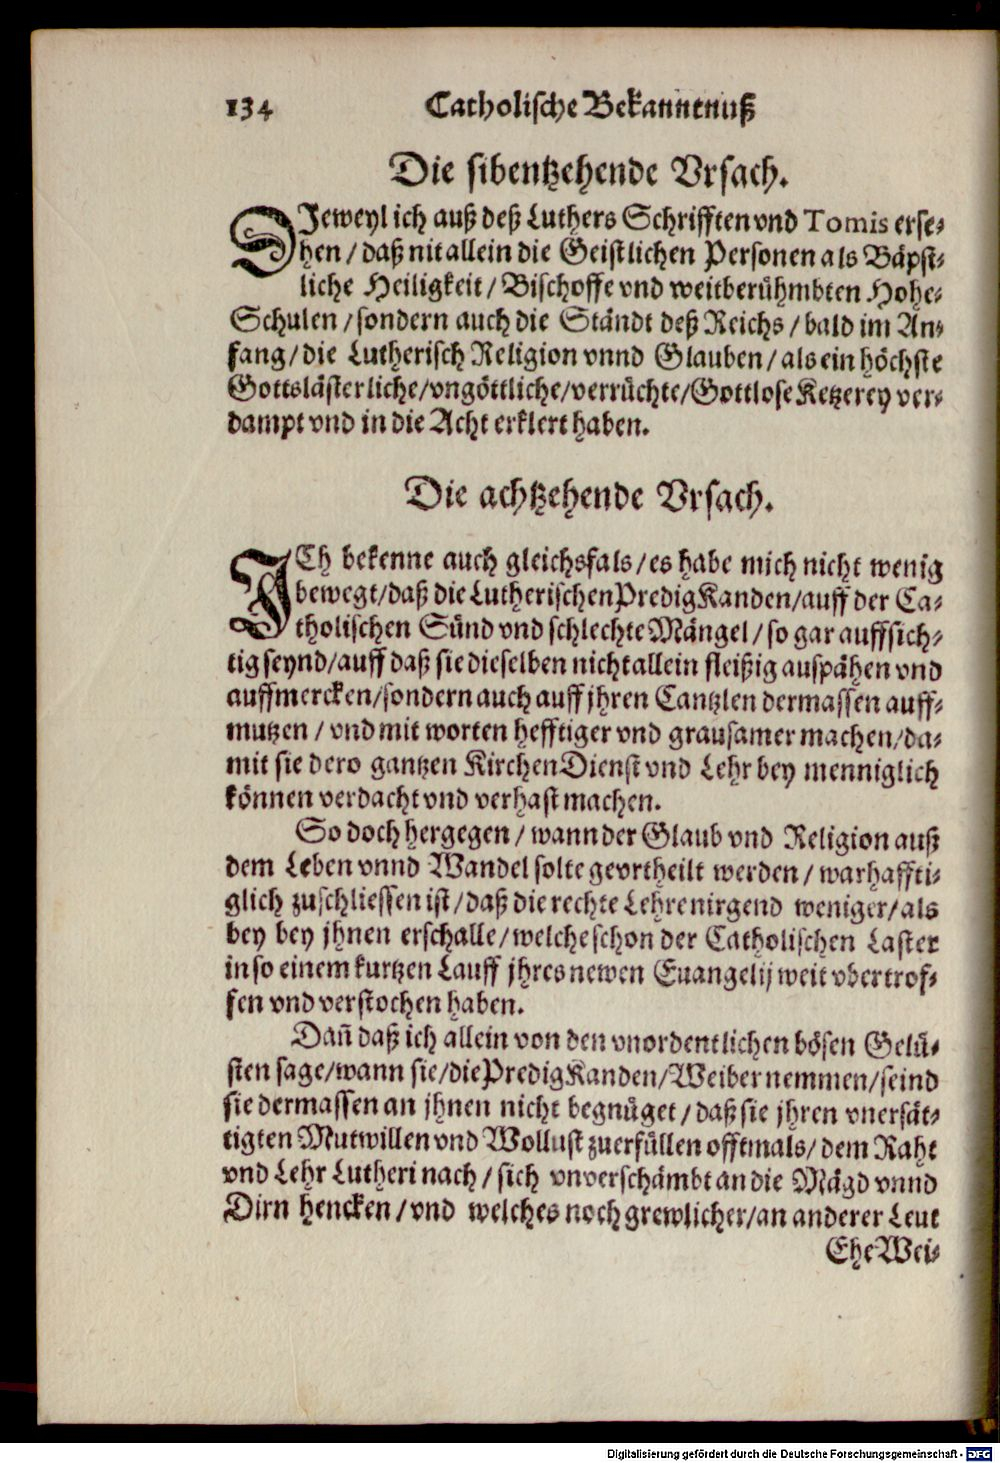 134 Catholische Bekanntnuß
Die sibentzehende Vrsach.
DJeweyl ich auß deß Luthers Schrifften vnd Tomis erse-
hen / daß nit allein die Geistlichen Personen als Bäpst-
liche Heiligkeit / Bischoffe vnd weitberühmbten Hohe-
Schulen / sondern auch die Ständt deß Reichs / bald im An-
fang / die Lutherisch Religion vnnd Glauben / als ein höchste
Gottslästerliche / vngöttliche / verrüchte / Gottlose Ketzerey ver-
dampt vnd in die Acht erklert haben.
Die achtzehende Vrsach.
JCh bekenne auch gleichsfals / es habe mich nicht wenig
bewegt / daß die Lutherischen PredigKanden / auff der Ca-
tholischen Sünd vnd schlechte Mängel / so gar auffsich-
tig seynd / auff daß sie dieselben nicht allein fleißig auspähen vnd
auffmercken / sondern auch auff jhren Cantzlen dermassen auff-
mutzen / vnd mit worten hefftiger vnd grausamer machen / da-
mit sie dero gantzen KirchenDienst vnd Lehr bey menniglich
können verdacht vnd verhast machen.
So doch hergegen / wann der Glaub vnd Religion auß
dem Leben vnnd Wandel solte gevrtheilt werden / warhaffti-
glich zuschliessen ist / daß die rechte Lehre nirgend weniger / als
bey bey jhnen erschalle / welche schon der Catholischen Laster
in so einem kurtzen Lauff jhres newen Euangelij weit vbertrof-
fen vnd verstochen haben.
Dan̄ daß ich allein von den vnordentlichen bösen Gelü-
sten sage / wann sie / die PredigKanden / Weiber nemmen / seind
sie dermassen an jhnen nicht begnüget / daß sie jhren vnersät-
tigten Mutwillen vnd Wollust zuerfüllen offtmals / dem Raht
vnd Lehr Lutheri nach / sich vnverschämbt an die Mägd vnnd
Dirn hencken / vnd welches noch grewlicher / an anderer Leut
EheWei-
Digitalisierung gefördert durch die Deutsche Forschungsgemeinschaft - DFG